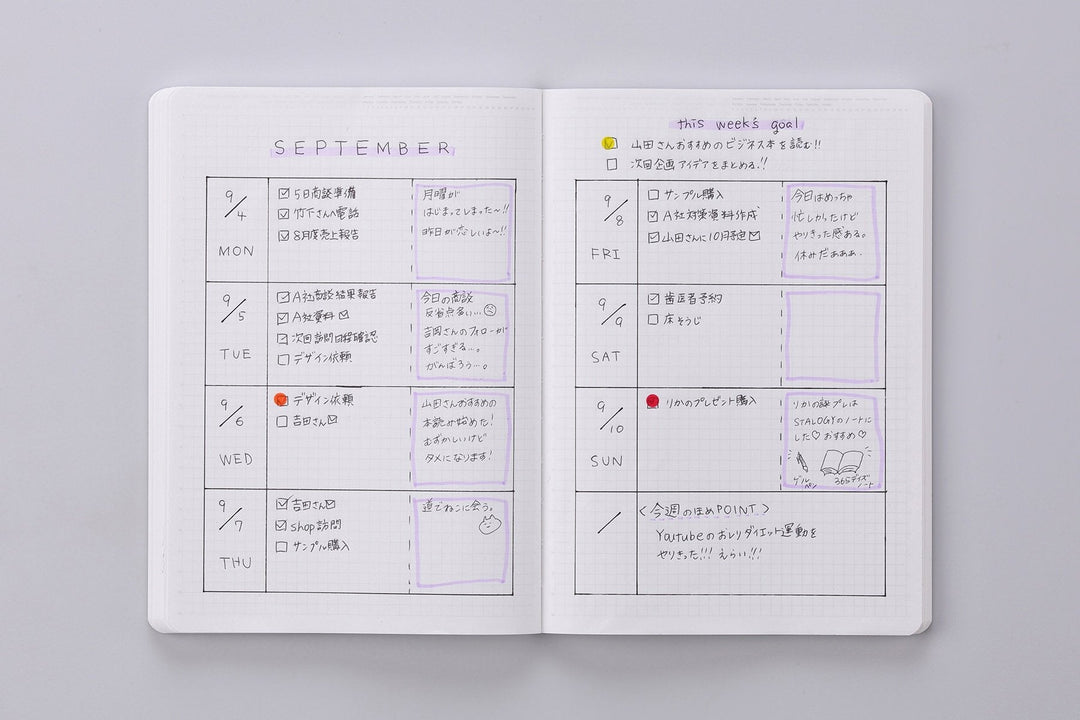 SEPTEMBER
9/4
MON
5日商談準備
竹下さんへ電話
8月度売上報告
月曜が
はじまってしまった〜!!
昨日が恋しいよ〜!!
9/5
TUE
A社商談結果報告
A社資料
次回訪問日程確認
デザイン依頼
今日の商談
反省点多い...
吉岡さんのフォローが
すごすぎる...。
がんばろう...。
9/6
WED
デザイン依頼
吉田さん
山田さんおすすめの
本読み始めた!
むずかしいけど
タメになります!
9/7
THU
吉田さん
shop訪問
サンプル購入
道でねこに会う。
this week's goal
山田さんおすすめのビジネス本を読む!!
次回企画アイデアをまとめる!!
9/8
FRI
サンプル購入
A社対策資料作成
山田さんに10月予定
今日はめっちゃ
忙しかったけど
やりきった感ある。
休みだぁぁぁ.
9/9
SAT
歯医者予約
床そうじ
9/10
SUN
りかのプレゼント購入
りかの誕プレは
STALOGYのノートに
した♡おすすめ♡
ゲルペン
365デイズノート
/
<今週のほめPOINT>
Youtubeのおしりダイエット運動を
やりきった!!! えらい!!!